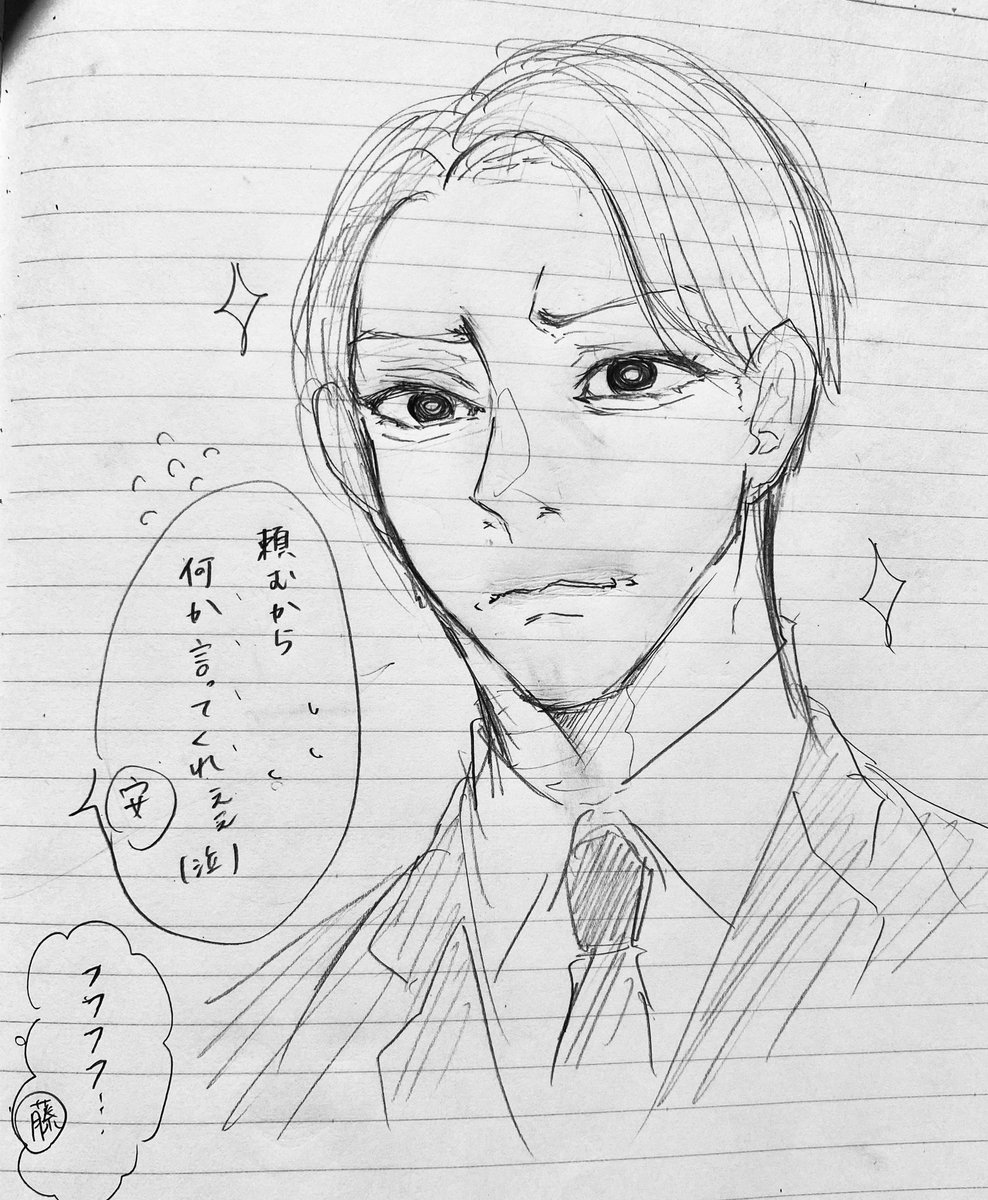 頼むから
何か言ってくれぇぇ
(泣)
安
フフフフ…
藤